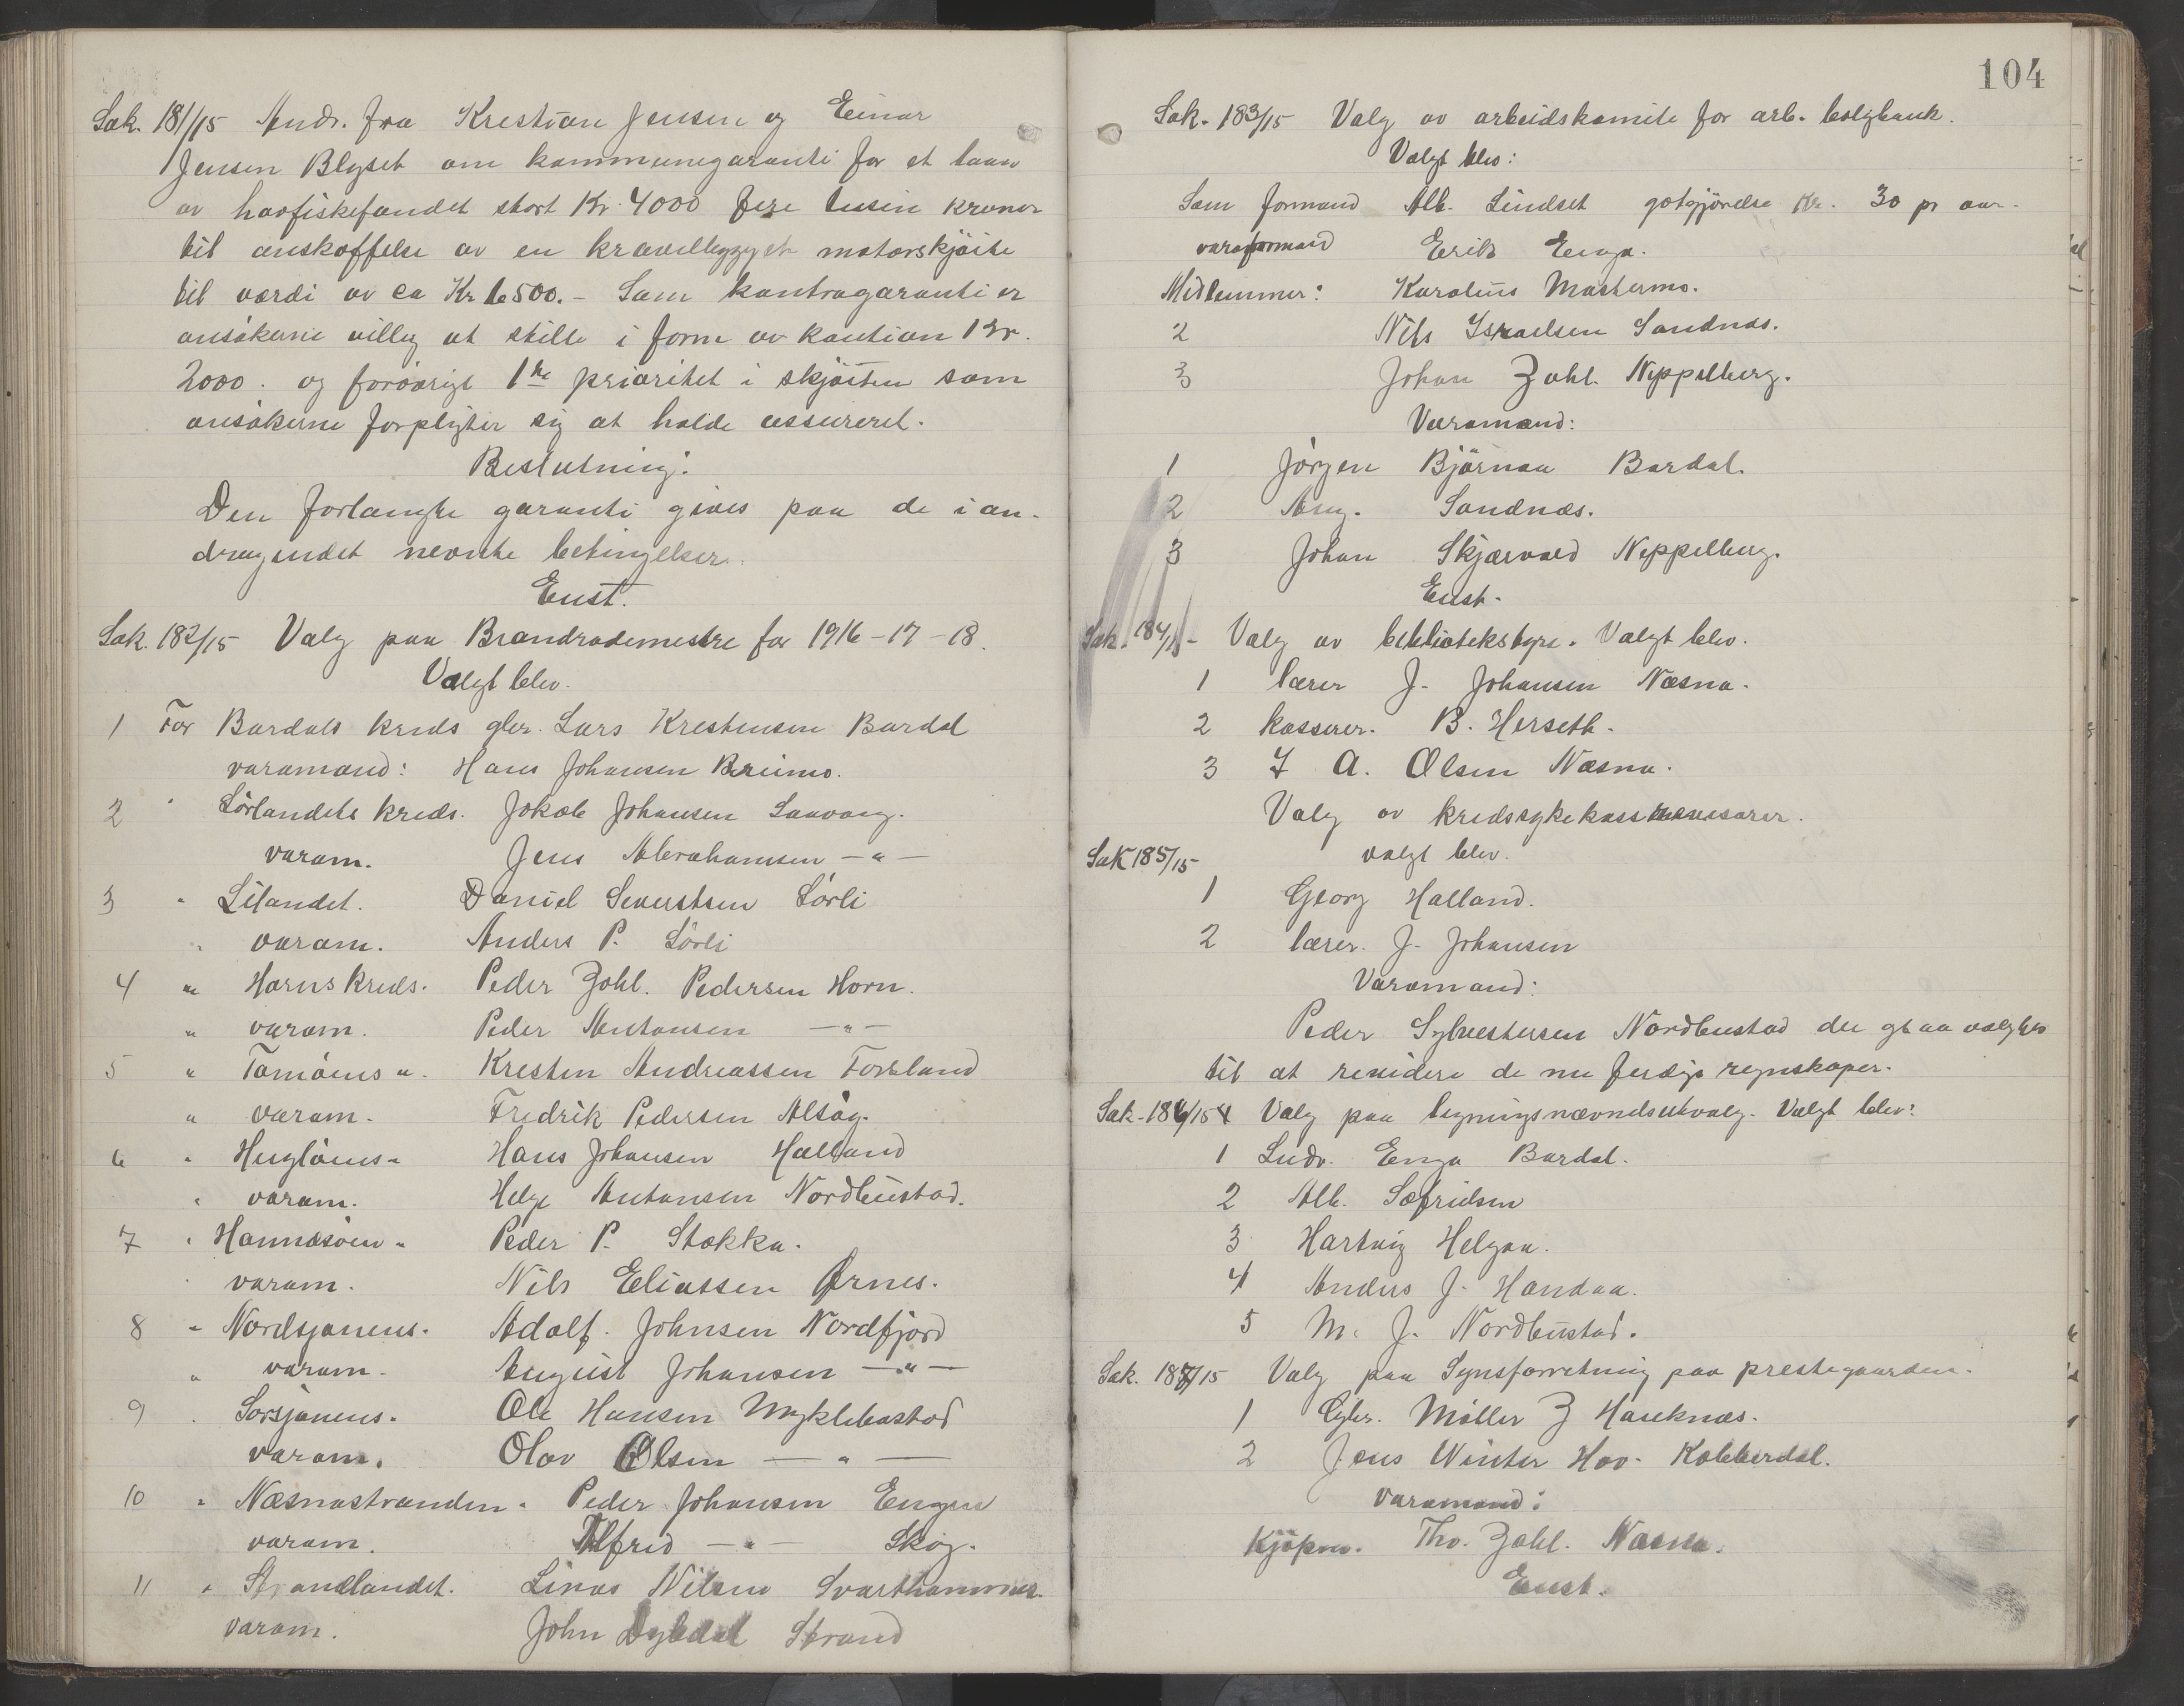 Sak. 181/15 Andr. fra Krestian Jensen og Einar
Jensen Blyset om kommunegaranti for et laan
av havfiskefondet stort Kr. 4000 fire tusin kroner
til anskaffelse av en kravelbygget motorskjöite
til værdi av ca Kr 6500.- Som kontragaranti er
ansökerne villig at stille i form av kaution Kr.
2000. og forövrigt 1ste prioritet i skjöiten som
ansökerne forpligter sig at holde assureret.
Beslutning:
Den forlangte garanti gives paa de i an-
dragendet nevnte betingelser.
Enst.
Sak. 182/15 Valg paa Brandrodemestre for 1916-17-18.
Valgt blev.
1 For Bardals kreds gbr. Lars Krestensen Bardal
varamand: Hans Johansen Breimo.
2 " Sörlandets kreds. Jakob Johansen Saavaag.
varam. Jens Abrahamsen -"-
3 " Lilandet. Daniel Severtsen Sörli
" varam. Anders P. Sörli
4 " Horns kreds. Peder Zahl. Pedersen Horn.
" varam. Peder Antonsen -"-
5 " Tomöens ". Kresten Andreassen Forsland
" varam. Fredrik Pedersen Alsög.
6 " Huglöens " Hans Johansen Halland
" varam. Helge Antonsen Nordbustad.
7 " Hannäsöen " Peder P. Stokka.
" varam. Nils Eliassen Örnes.
8 " Nordsjonens. Adolf. Johnsen Nordfjord
" varam. August Johansen -"-
9 " Sörsjonens. Ole Hansen Myklebostad
varam. Olav Olsen - " -
10 " Næsnastranden. Peder Johansen Engen
varam. Alfred -"- Skog.
11 " Strandlandet. Linas Nilsen Svarthammer.
varam. John Dybdal Strand
104
Sak. 183/15 Valg av arbeidskomite for arb. boligbank.
Valgt blev:
Som formand Alb. Lindset gotgjörelse Kr. 30 pr aar.
varaformand Erik Enga.
Medlemmer: Karolius Mastermo.
2 Nils Israelsen Sandnes.
3 Johan Zahl. Neppelberg.
Varamænd:
1 Jörgen Björnaa Bardal.
2 Aug. Sandnæs.
3 Johan Skjærvold Neppelberg.
Enst.
Sak. 184/15- Valg av biblioteksstyre. Valgt blev.
1 lærer J. Johansen Næsna.
2 kasserer. B. Herseth.
3 I A. Olsen Næsna.
Valg av kredssykekasserevisorer.
Sak 185/15 valgt blev.
1 Georg Halland.
2 lærer. J. Johansen
Varamand:
Peder Sylvestersen Nordbustad de ogsaa valgtes
til at revidere de nu ferdige regnskaper.
Sak-186/15 Valg paa ligningsnævndsutvalg. Valgt blev:
1 Ludv. Enga Bardal.
2 Alb. Sæfridsen
3 Hartvig Helgaa.
4 Anders J. Handaa.
5 M. J. Nordbustad.
Sak. 187/15 Valg paa Synsforretning paa prestegaarden.
1 Gbr. Möller Z Hauknæs.
2 Jens Winter Hov. Kobberdal.
Varamand:
Kjöpm. Thv. Zahl. Næsna.
Enst.